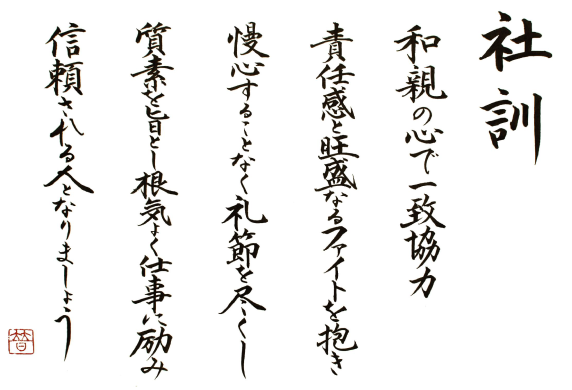 社訓
和親の心で一致協力
責任感と旺盛なるファイトを抱き
慢心することなく礼節を尽くし
質素を旨とし根気よく仕事に励み
信頼される人となりましょう